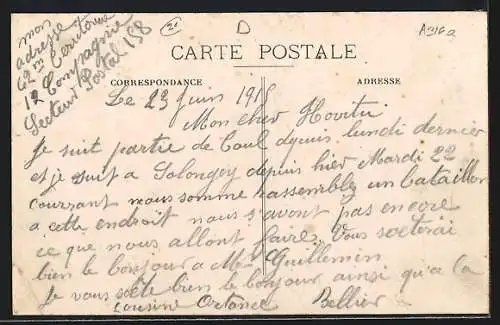 mon
adresse
62m Territorial
12 Compagnie
Secteur Postal 158
D
CARTE POSTALE
CORRESPONDANCE
ADRESSE
Le 23 Juin 1915
Mon cher
Je suit partie de Toul dpuis lundi dernier
et je suit a Solongey depuis hier Mardi 22
courrant nous somme rassemblez un bataillon
a cette endroit nous s'avont pas encore
ce que nous allont faire. Vous
bien le bonjour a Guillemin
Je vous bien le bonjour ainsi qu'a la
cousine Ortance Bellier